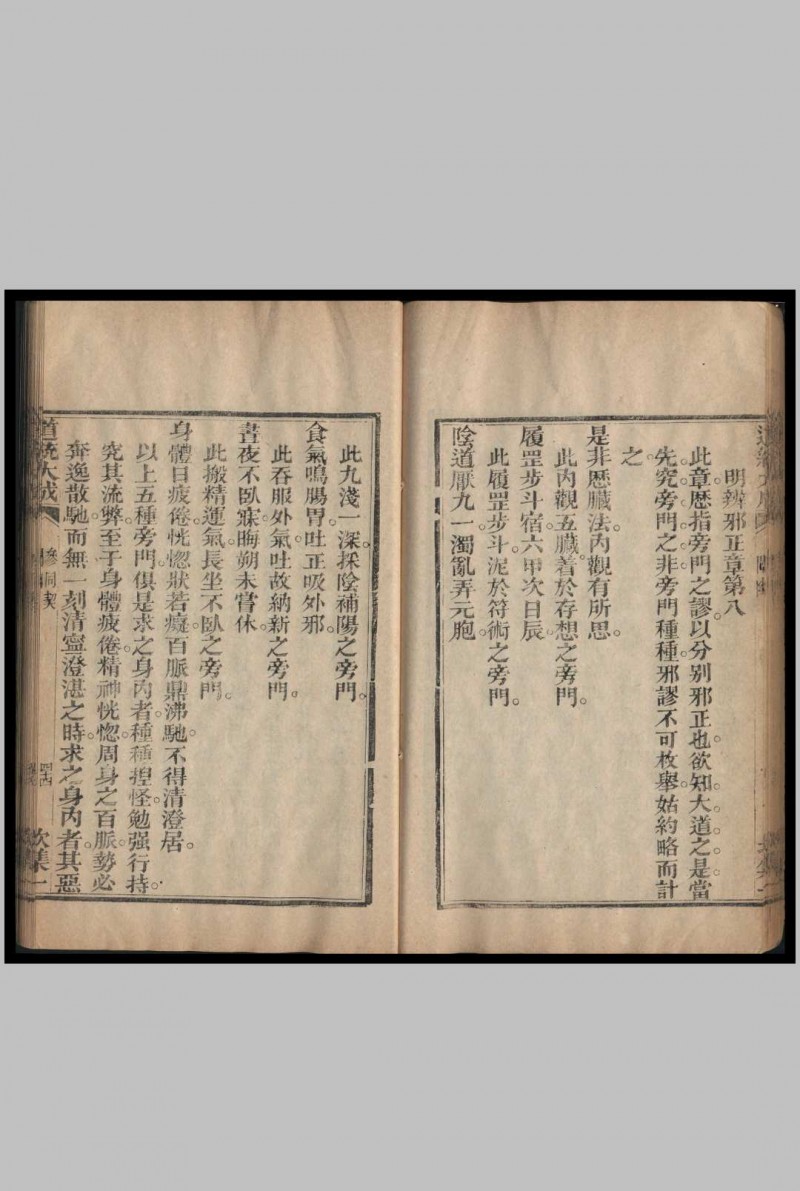 明辨邪正章第八
此章歷指旁門之謬。以分別邪正也。欲知大道之是。當
先究旁門之非。旁門種種邪謬。不可枚舉。姑約略而計
之。
是非歷臟法。內觀有所思。
此內觀五臟。着於存想之旁門。
履罡步斗宿。六甲次日辰。
此履罡步斗。泥於符術之旁門。
陰道厭九一。濁亂弄元胞。
此九淺一深。採陰補陽之旁門。
食氣鳴腸胃。吐正吸外邪。
此吞服外氣。吐故納新之旁門。
晝夜不臥寐。晦朔未嘗休。
此搬精運氣。長坐不臥之旁門。
身體日疲倦。恍惚狀若癡。百脈鼎沸馳。不得清澄居。
以上五種旁門。俱是求之身內者。種種揑怪。勉强行持。
究其流弊。至于身體疲倦。精神恍惚。周身之百脈。勢必
奔逸散馳。而無一刻清寧澄湛之時。求之身內者。其惡
道統大成
參同契
四十四
坎集一